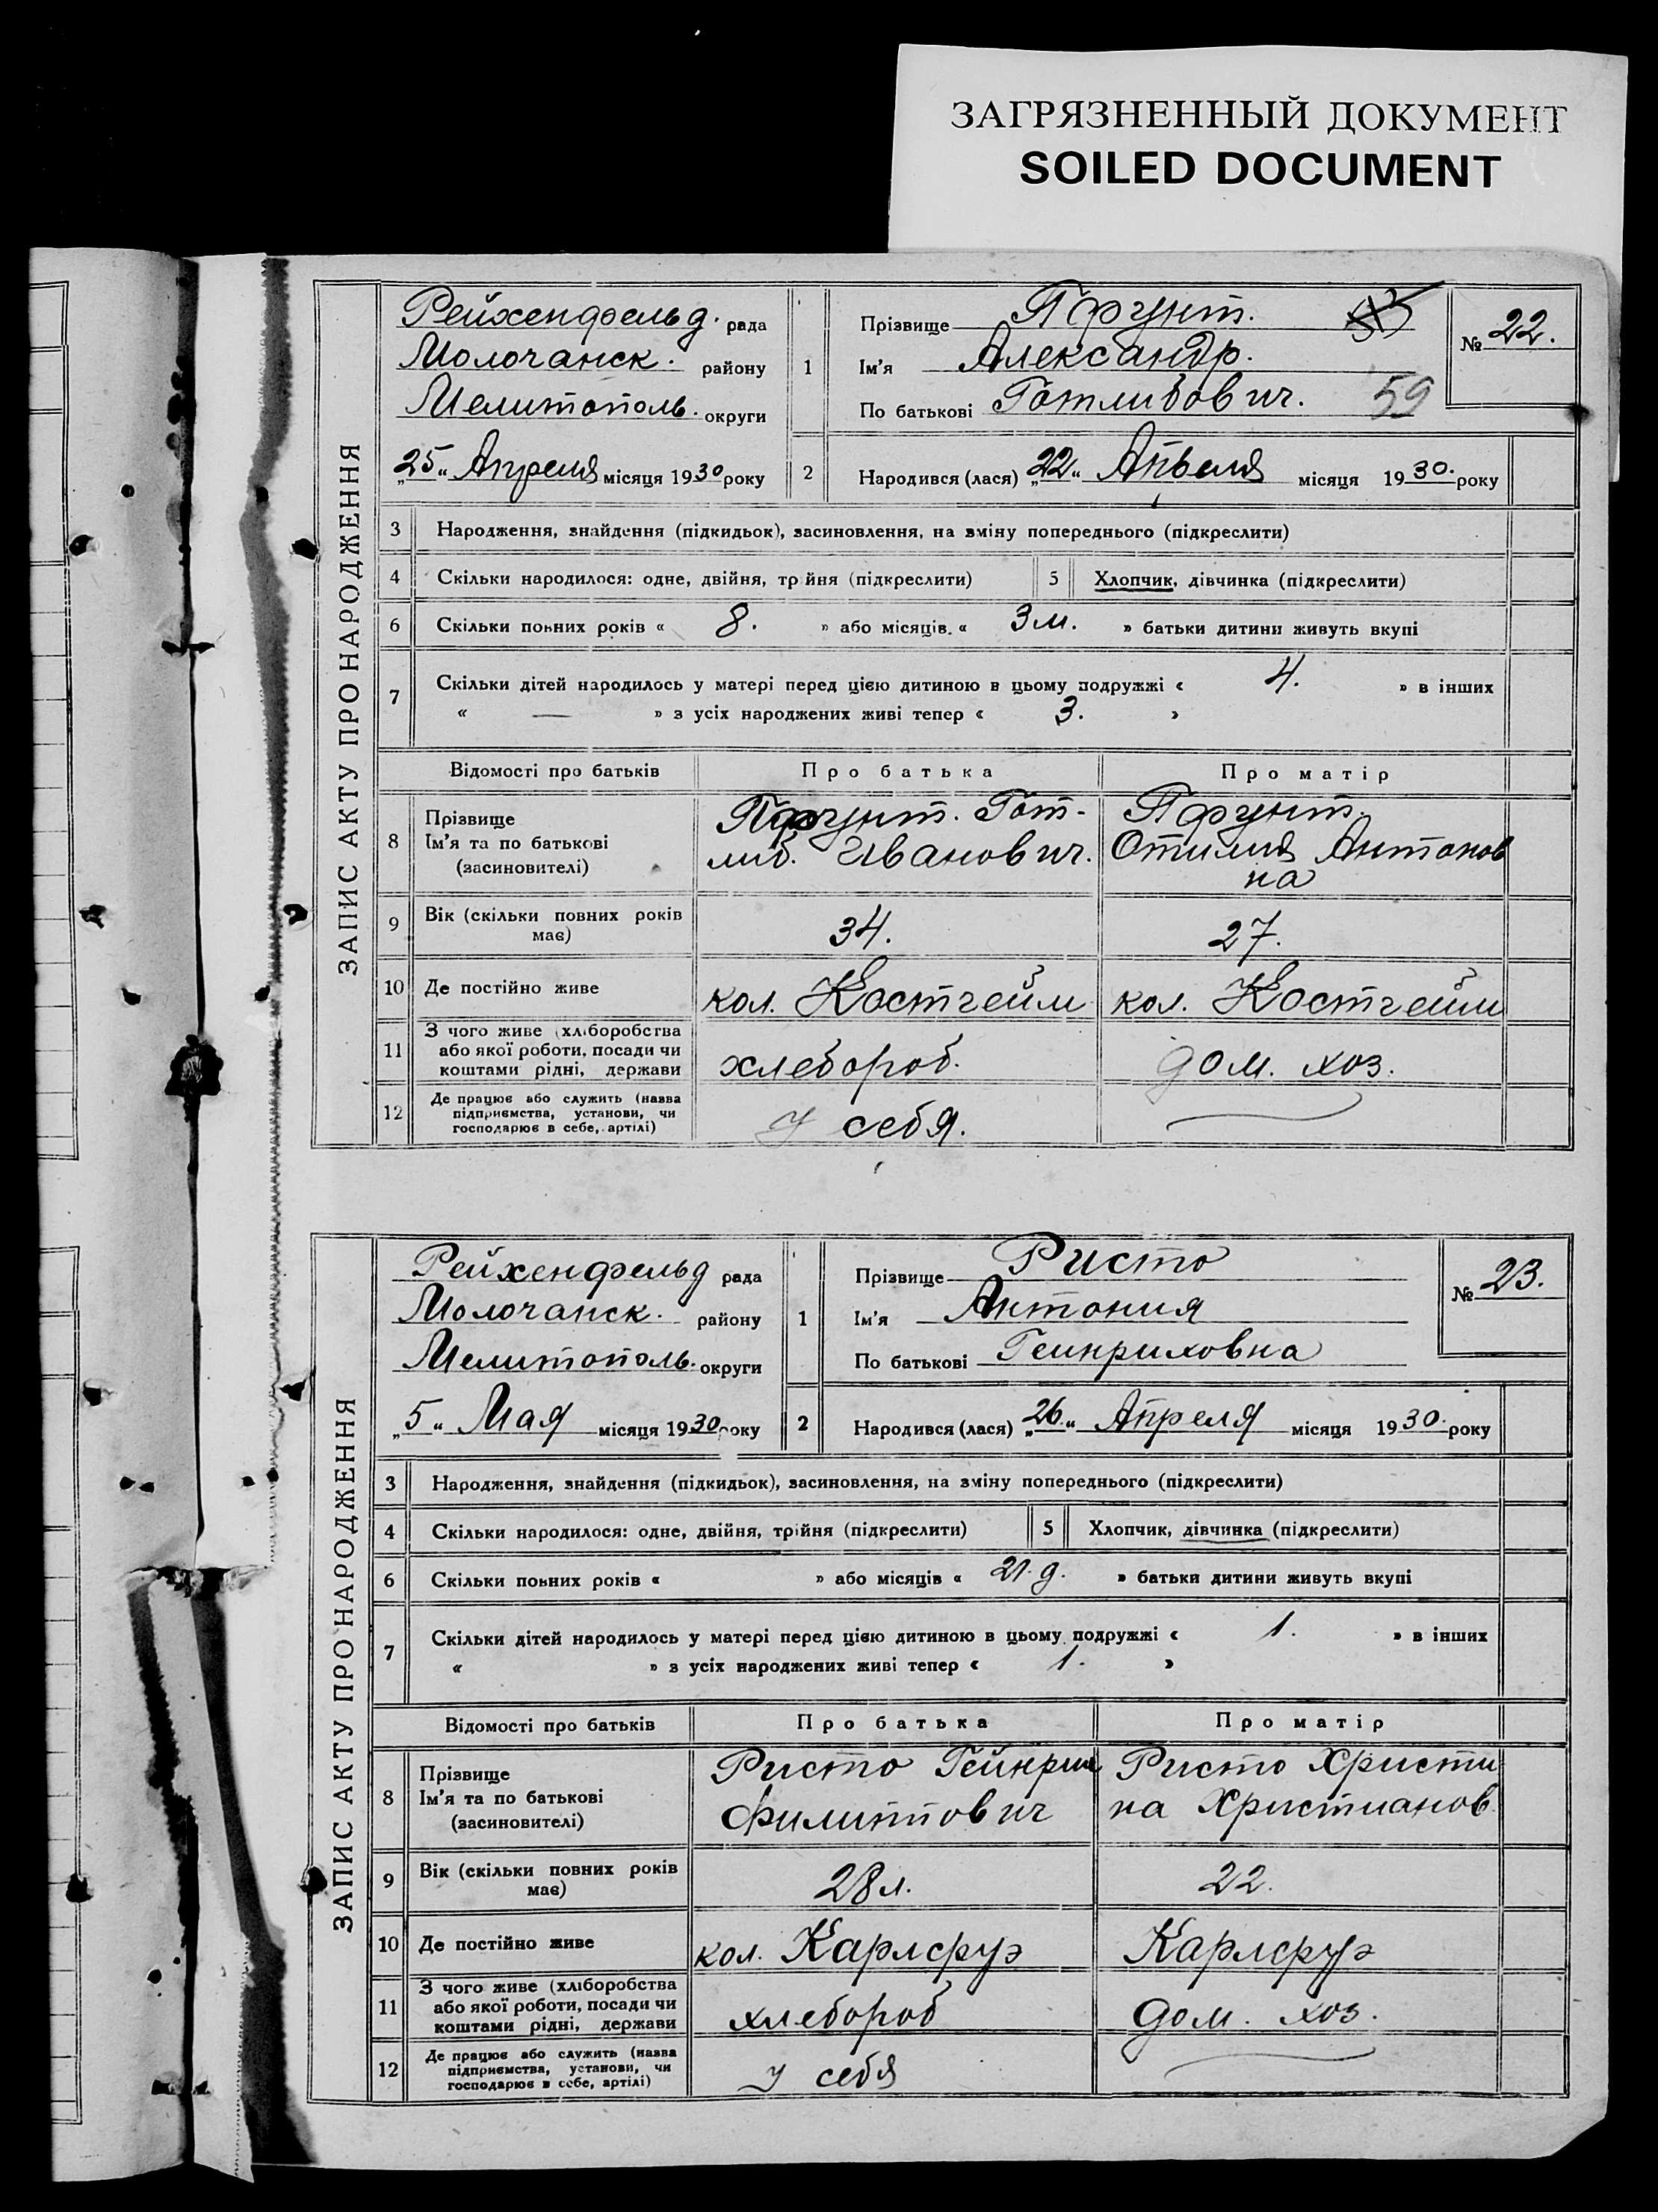 ЗАГРЯЗНЕННЫЙ ДОКУМЕНТ
SOILED DOCUMENT
ЗАПИС АКТУ ПРО НАРОДЖЕННЯ
Рейхенфельд. рада
Молочанск. району
Мелитополь. округи
„25" Апреля місяця 1930 року
1
Прізвище Пфунт.
Ім'я Александр.
По батькові Готлибович. 59
№ 22.
2 Народився (лася) „22" Апреля місяця 1930. року
3 Народження, знайдення (підкидьок), засиновлення, на зміну попереднього (підкреслити)
4 Скільки народилося: одне, двійня, трійня (підкреслити) 5 Хлопчик, дівчинка (підкреслити)
6 Скільки повних років « 8. » або місяців « 3 м. » батьки дитини живуть вкупі
7 Скільки дітей народилось у матері перед цією дитиною в цьому подружжі « 4. » в інших
« — » з усіх народжених живі тепер « 3. »
Відомості про батьків Про батька Про матір
8 Прізвище
Ім'я та по батькові
(засиновителі)
Пфунт. Гот-
либ. Иванович.
Пфунт.
Отилия Антонов
на
9 Вік (скільки повних років
має)
34. 27.
10 Де постійно живе кол. Костгейм кол. Костгейм
11 З чого живе (хліборобства
або якої роботи, посади чи
коштами рідні, держави
хлебороб. дом. хоз.
12 Де працює або служить (назва
підприємства, установи, чи
господарює в себе, артілі)
у себя.
ЗАПИС АКТУ ПРО НАРОДЖЕННЯ
Рейхенфельд рада
Молочанск. району
Мелитополь. округи
„5" Мая місяця 1930 року
1
Прізвище Ристо
Ім'я Антония
По батькові Генриховна
№ 23.
2 Народився (лася) „26." Апреля місяця 1930. року
3 Народження, знайдення (підкидьок), засиновлення, на зміну попереднього (підкреслити)
4 Скільки народилося: одне, двійня, трійня (підкреслити) 5 Хлопчик, дівчинка (підкреслити)
6 Скільки повних років « » або місяців « 21. д. » батьки дитини живуть вкупі
7 Скільки дітей народилось у матері перед цією дитиною в цьому подружжі « 1. » в інших
« » з усіх народжених живі тепер « 1. »
Відомості про батьків Про батька Про матір
8 Прізвище
Ім'я та по батькові
(засиновителі)
Ристо Гейнрих
Филиппович
Ристо Христи
на Христианов
9 Вік (скільки повних років
має)
28 л. 22.
10 Де постійно живе кол. Карлсруэ Карлсруэ
11 З чого живе (хліборобства
або якої роботи, посади чи
коштами рідні, держави
хлебороб дом. хоз.
12 Де працює або служить (назва
підприємства, установи, чи
господарює в себе, артілі)
у себя